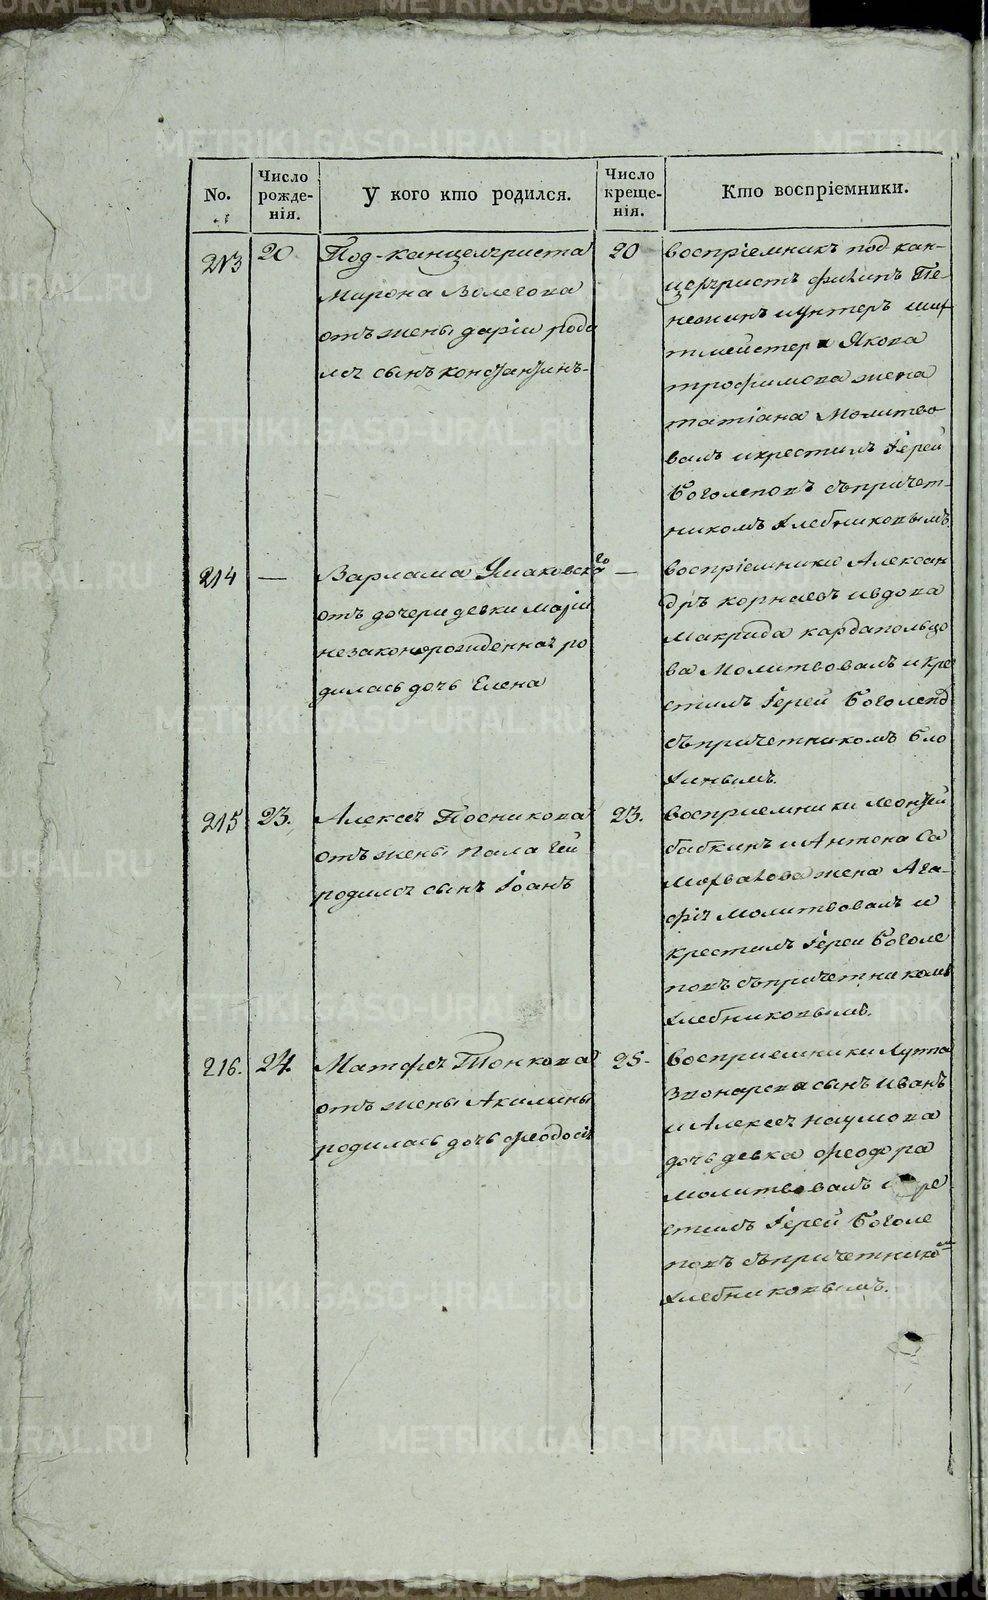 METRIKI.GASO-URAL.RU
No.
Число рожде-нія.
У кого кто родился.
Число креще-нія.
Кто воспріемники.
213
20
Под-канцеляриста
Мирона Волегова
отъ жены даріи роди
лся сынъ константинъ-
20
воспріемникъ под кан-
Якова
трофимова жена
татіана Молитво
валъ икрестилъ Іерей
Боголеповъ съпричет-
никомъ хлебниковымъ
214
—
Варлама
отъ дочери девки маріи
незаконорожденная ро
дилась дочь Елена
—
воспріемники Алексан
дръ корнаевъ ивдова
Макрида кардапольцо
ва Молитвовалъ икре
стилъ Іерей Боголепов
съпричетникомъ Бло
хинымъ.
215
23.
Алексея Посникова
отъ жены палагеи
родился сынъ Іоанъ
23.
воспріемники леонтей
бабкинъ иАнтона Са
жена Ага-
фія молитвовалъ и
крестилъ Іереи Боголе
повъ съпричетникомъ
хлебниковымъ.
216.
24.
Матфея Тонкова
отъ жены Акилины
родилась дочь феодосія
25.
воспріемники Луппа
сынъ иванъ
иАлексея наумова
дочь девка феодора
молитвовалъ
стилъ Іерей Боголе
повъ съпричетникомъ
хлебниковымъ.
METRIKI.GASO-URAL.RU